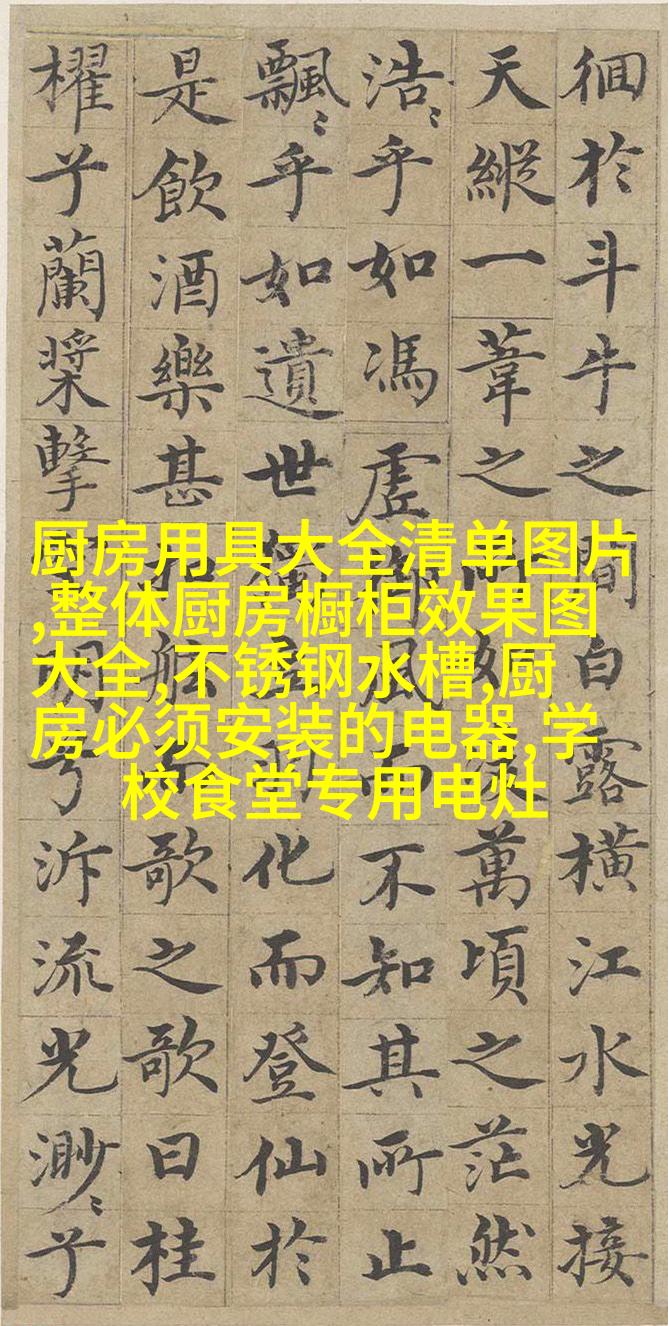 徊於斗牛之間白露橫江水光接
天縱一葦之所如凌萬頃之茫然
浩〻乎如馮虛御風而不知其所止
飄〻乎如遺世獨立羽化而登仙於
是飲酒樂甚扣舷而歌之歌曰桂
櫂兮蘭槳擊空明兮泝流光渺〻兮
厨房用具大全清单图片
,整体厨房橱柜效果图
大全,不锈钢水槽,厨
房必须安装的电器,学
校食堂专用电灶